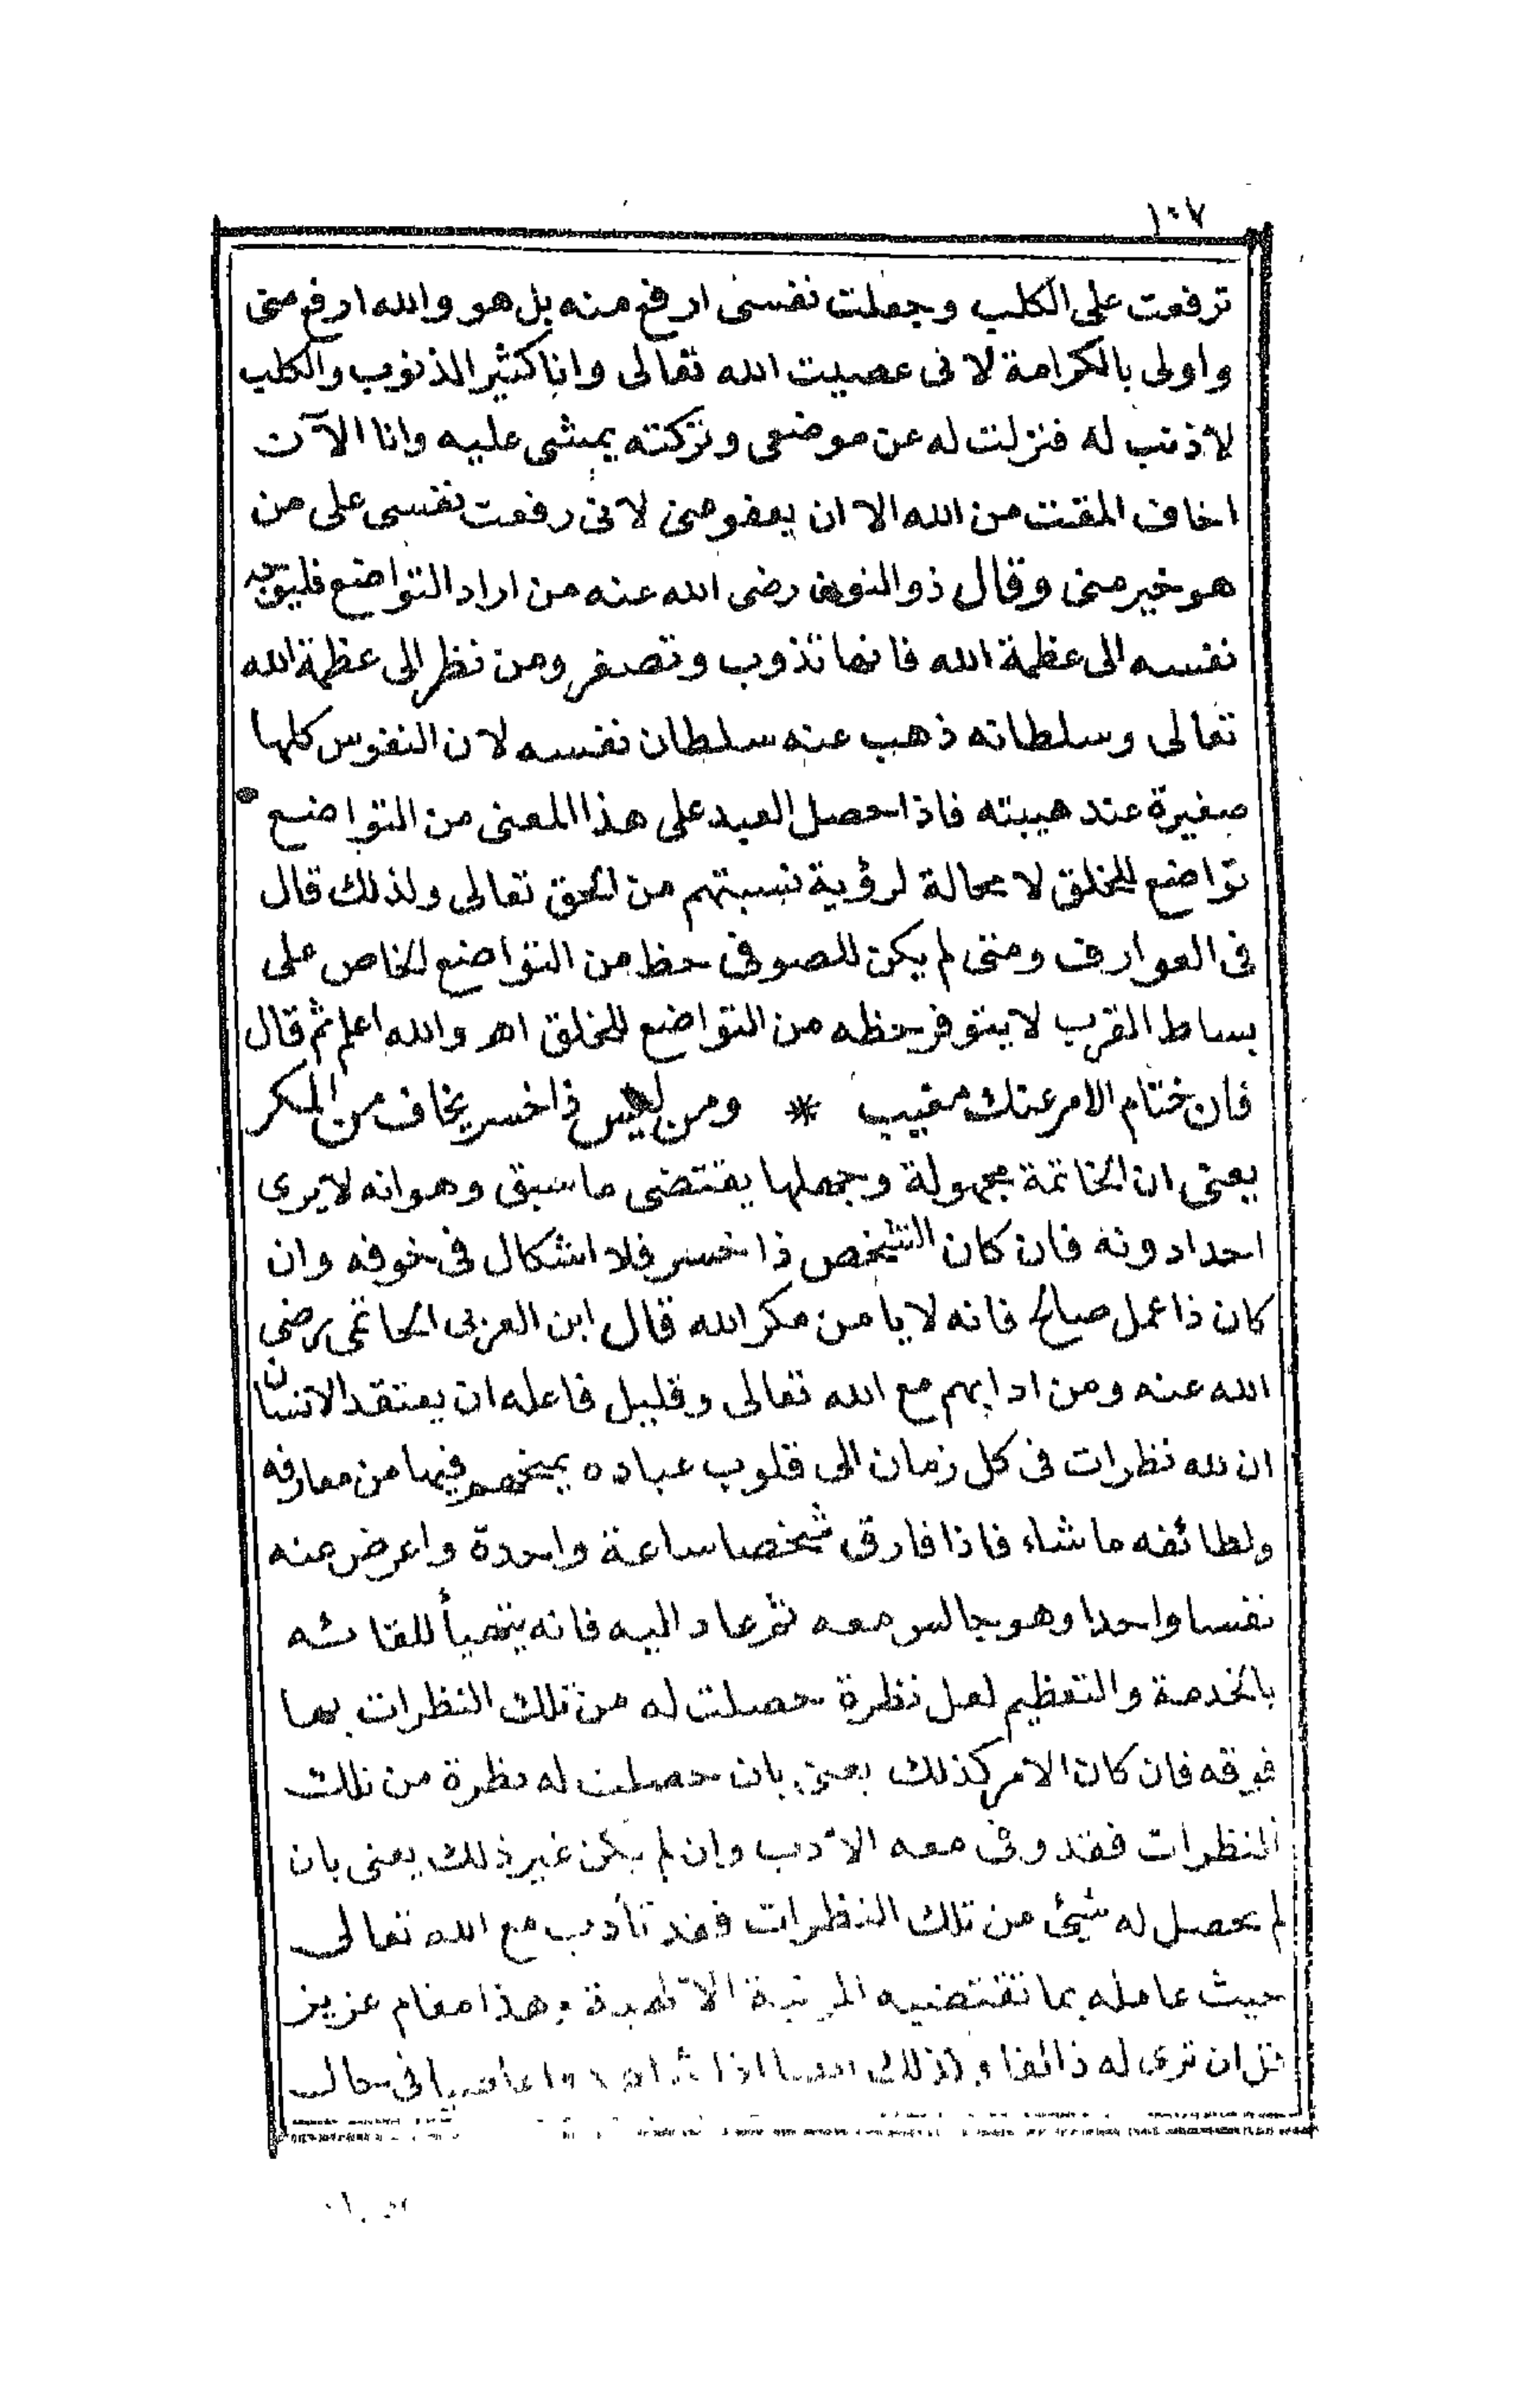 ١٠٧
ترفعت على الكلب وجعلت نفسى ارفع منه بل هو والله ارفع منى
واولى بالكرامة لانى عصيت الله تعالى وانا كثير الذنوب والكلب
لا ذنب له فنزلت له عن موضعى وتركته يمشى عليه وانا الآن
اخاف المقت من الله الا ان يعفو عنى لانى رفعت نفسى على من
هو خير منى وقال ذو النون رضى الله عنه من اراد التواضع فليوجه
نفسه الى عظمة الله فانها تذوب وتصغر ومن نظر الى عظمة الله
تعالى وسلطانه ذهب عنه سلطان نفسه لان النفوس كلها
صغيرة عند هيبته فاذا حصل العبد على هذا المعنى من التواضع
تواضع للخلق لا محالة لرؤية نسبتهم من الحق تعالى ولذلك قال
فى العوارف ومتى لم يكن للصوفى حظ من التواضع الخاص على
بساط القرب لا يتوفر حظه من التواضع للخلق اهـ والله اعلم ثم قال
فان ختام الامر عنك مغيب * ومن ليس ذا خسر يخاف من المكر
يعنى ان الخاتمة مجهولة وجهلها يقتضى ما سبق وهو انه لا يرى
احدا دونه فان كان الشخص ذا خسر فلا اشكال فى خوفه وان
كان ذا عمل صالح فانه لا يامن مكر الله قال ابن العربى الحاتمى رضى
الله عنه ومن ادابهم مع الله تعالى وقليل فاعله ان يعتقد الانسان
ان لله نظرات فى كل زمان الى قلوب عباده يمنحهم فيها من معارفه
ولطائفه ما شاء فاذا فارق شخصا ساعة واحدة واعرض عنه
نفسا واحدا وهو جالس معه ثم عاد اليه فانه يتهيأ للقائه
بالخدمة والتعظيم لعل نظرة حصلت له من تلك النظرات بها
فوقه فان كان الامر كذلك يعنى بان حصلت له نظرة من تلك
النظرات فقد وفى معه الأدب وان لم يكن غير ذلك يعنى بان
لم يحصل له شئ من تلك النظرات فقد تأدب مع الله تعالى
حيث عامله بما تقتضيه المرتبة الالهية وهذا مقام عزيز
قل ان ترى له ذائقا وكذلك ايضا اذا عاصيا فى حال